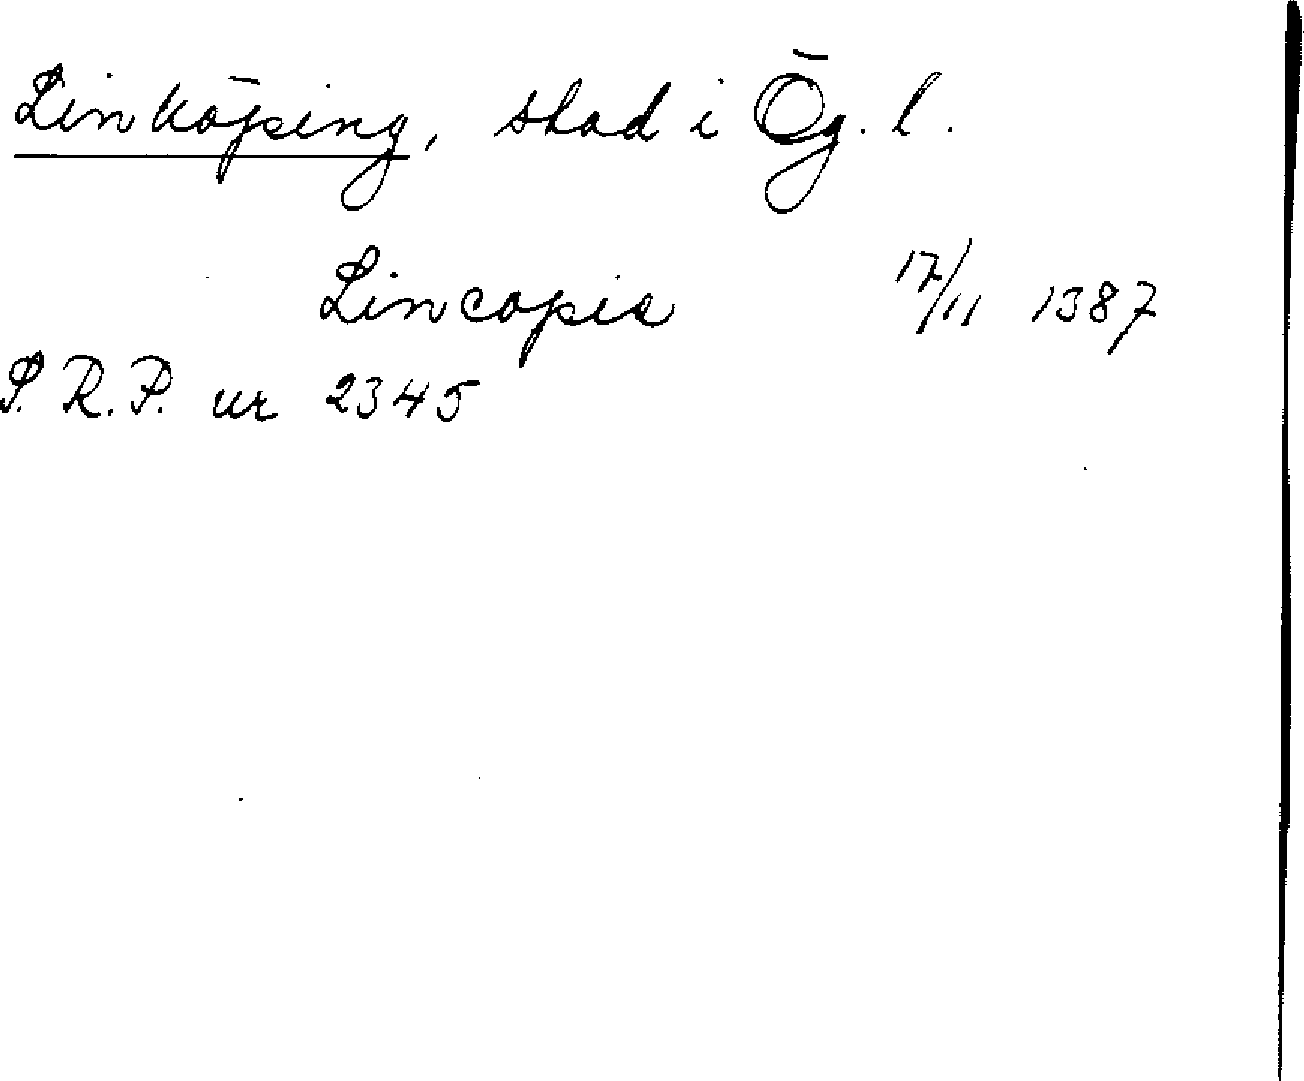 Linköping, stad i Ög. l.
Lincopie 17/11 1387
S.R.P. nr 2345